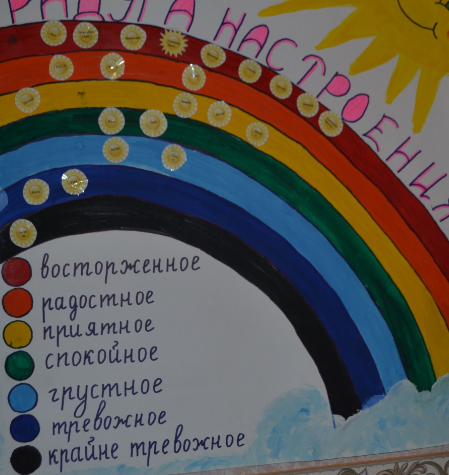 РАДУГА НАСТРОЕНИЯ
восторженное
радостное
приятное
спокойное
грустное
тревожное
крайне тревожное